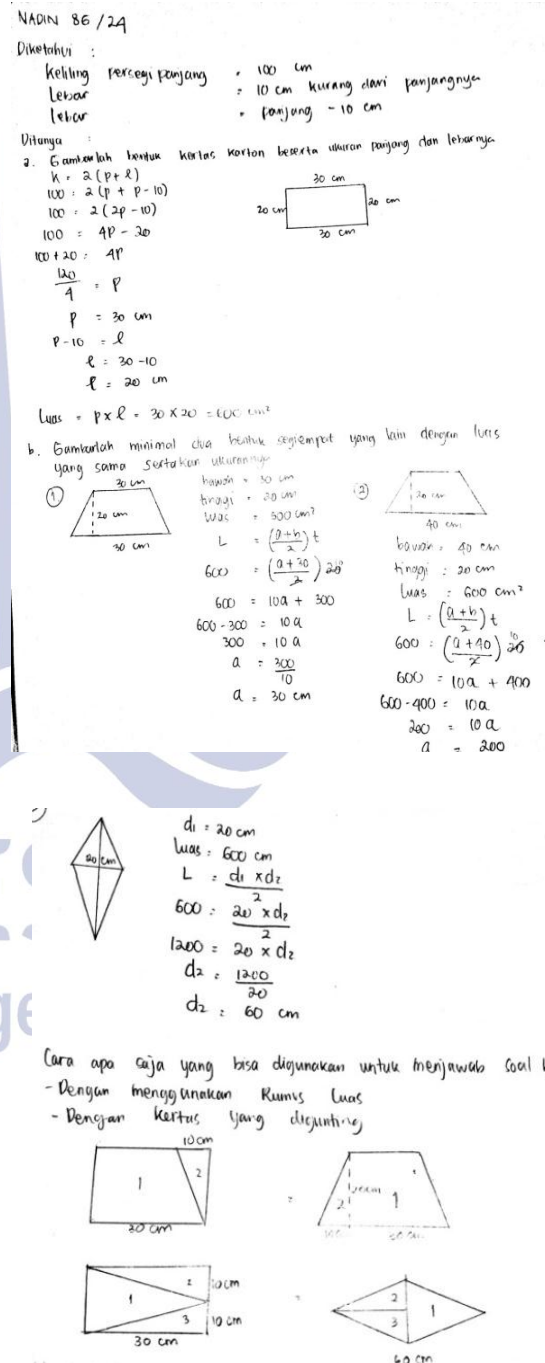 NADIN 8G / 24
Diketahui :
Keliling Persegi panjang = 100 cm
Lebar = 10 cm kurang dari panjangnya
lebar = panjang - 10 cm
Ditanya :
a. Gambarlah bentuk kertas karton beserta ukuran panjang dan lebarnya
k = 2 (p + l)
100 = 2 (p + p - 10)
100 = 2 (2p - 10)
100 = 4p - 20
100 + 20 = 4p
120/4 = p
p = 30 cm
p - 10 = l
l = 30 - 10
l = 20 cm
30 cm
20 cm
20 cm
30 cm
Luas = p x l = 30 x 20 = 600 cm²
b. Gambarlah minimal dua bentuk segiempat yang lain dengan luas
yang sama sertakan ukurannya
①
30 cm
20 cm
30 cm
bawah = 30 cm
tinggi = 20 cm
luas = cm²
L = (a+b/2) t
600 = (a + 30/2) 20
600 = 10a + 300
600 - 300 = 10a
300 = 10a
a = 300/10
a = 30 cm
②
20 cm
40 cm
bawah = 40 cm
tinggi = 20 cm
luas = 600 cm²
L = (a+b/2) t
600 = (a + 40/2) 20 10
600 = 10a + 400
600 - 400 = 10a
200 = 10a
a = 200
20 cm
d1 = 20 cm
luas = 600 cm
L = d1 x d2/2
600 = 20 x d2/2
1200 = 20 x d2
d2 = 1200/20
d2 = 60 cm
Cara apa saja yang bisa digunakan untuk menjawab soal
- Dengan menggunakan Rumus luas
- Dengan kertas yang digunting
10 cm
1
2
30 cm
=
2
1
1
2
3
10 cm
10 cm
30 cm
=
2
3
1
60 cm